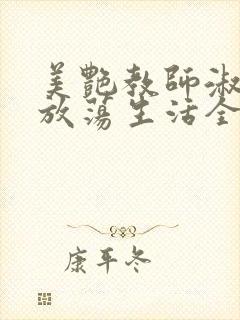 美艷教師淑
放蕩生活全
康平冬